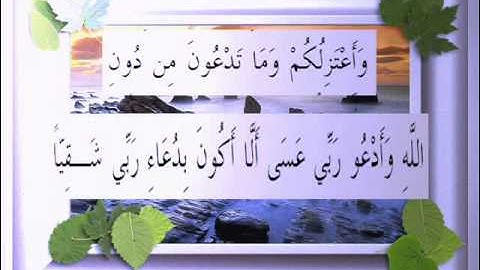 وَأَعْتَزِلُكُمْ وَمَا تَدْعُونَ مِن دُونِ
اللَّهِ وَأَدْعُو رَبِّي عَسَى أَلَّا أَكُونَ بِدُعَاءِ رَبِّي شَـــقِيًّا